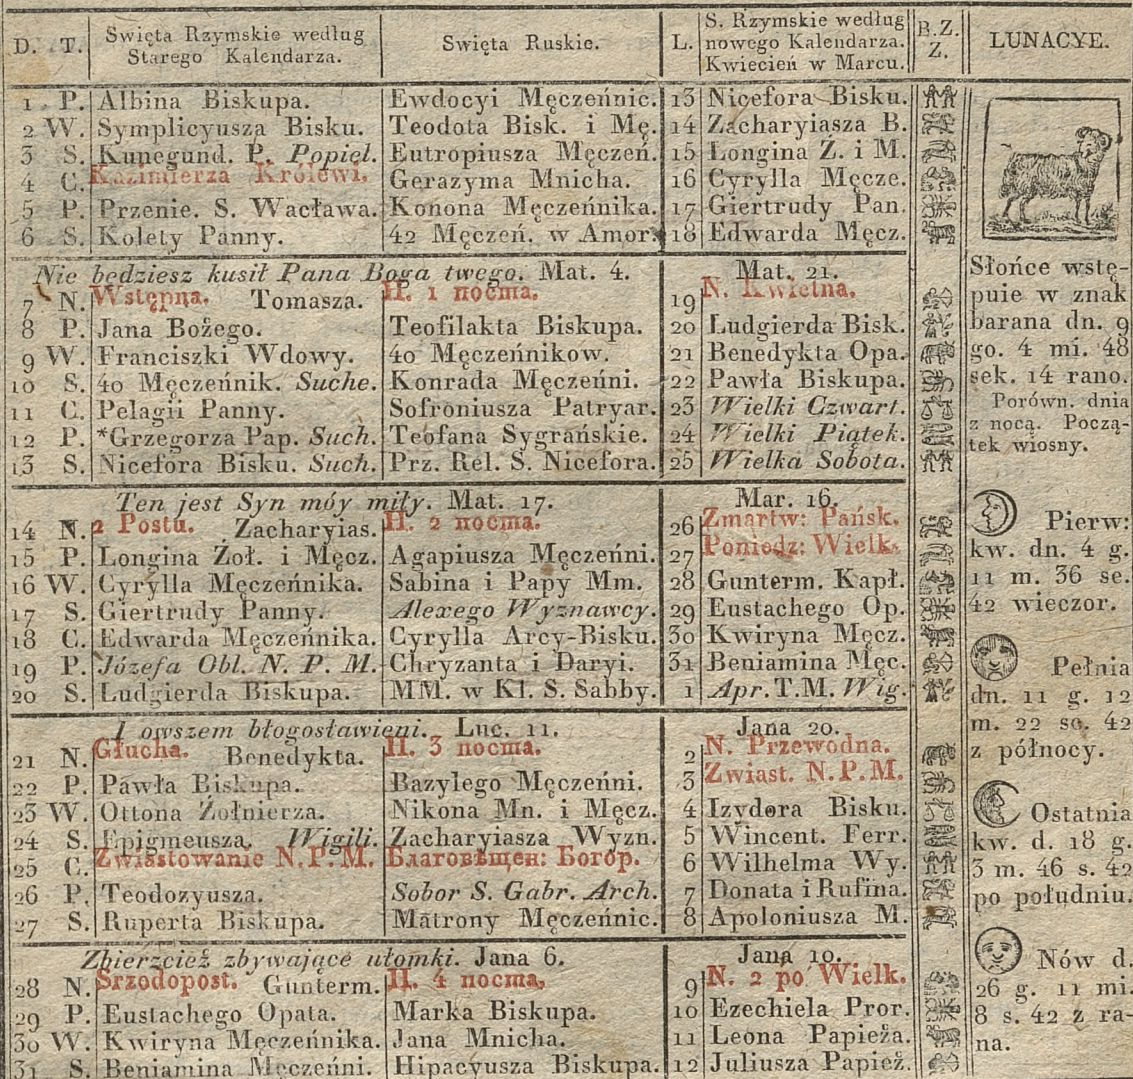 D. T. Swięta Rzymskie według Starego Kalendarza. Swięta Ruskie. L. S. Rzymskie według nowego Kalendarza. Kwiecień w Marcu. B.Z. Z. LUNACYE.
1 P. Albina Biskupa. Ewdocyi Męczeńnic. 13 Nicefora Bisku.
2 W. Symplicyusza Bisku. Teodota Bisk. i Mę. 14 Zacharyiasza B.
3 S. Kunegund. P. Popiel. Eutropiusza Męczeń. 15 Longina Z. i M.
4 C. Kazimierza Królewi. Gerazyma Mnicha. 16 Cyrylla Męcze.
5 P. Przenie. S. Wacława. Konona Męczeńnika. 17 Giertrudy Pan.
6 S. Kolety Panny. 42 Męczeń. w Amor. 18 Edwarda Męcz.
Nie będziesz kusił Pana Boga twego. Mat. 4. Mat. 21.
7 N. Wstępna. Tomasza. Н. 1 поста. 19 N. Kwietna.
8 P. Jana Bożego. Teofilakta Biskupa. 20 Ludgierda Bisk.
9 W. Franciszki Wdowy. 40 Męczeńnikow. 21 Benedykta Opa.
10 S. 40 Męczeńnik. Suche. Konrada Męczeńni. 22 Pawła Biskupa.
11 C. Pelagii Panny. Sofroniusza Patryar. 23 Wielki Czwart.
12 P. *Grzegorza Pap. Such. Teofana Sygrańskie. 24 Wielki Piątek.
13 S. Nicefora Bisku. Such. Prz. Rel. S. Nicefora. 25 Wielka Sobota.
Ten jest Syn móy miły. Mat. 17. Mar. 16.
14 N. 2 Postu. Zacharyias. Н. 2 поста. 26 Zmartw: Pańsk.
15 P. Longina Żoł. i Męcz. Agapiusza Męczeńni. 27 Poniedz: Wielk.
16 W. Cyrylla Męczeńnika. Sabina i Papy Mm. 28 Gunterm. Kapł.
17 S. Giertrudy Panny. Alexego Wyznawcy. 29 Eustachego Op.
18 C. Edwarda Męczeńnika. Cyrylla Arcy-Bisku. 30 Kwiryna Męcz.
19 P. Józefa Obl. N. P. M. Chryzanta i Daryi. 31 Beniamina Męc.
20 S. Ludgierda Biskupa. MM. w Kl. S. Sabby. 1 Apr. T.M. Wig.
I owszem błogosławieni. Luc. 11. Jana 20.
21 N. Głucha. Benedykta. Н. 3 поста. 2 N. Przewodna.
22 P. Pawła Biskupa. Bazylego Męczeńni. 3 Zwiast. N.P.M.
23 W. Ottona Żołnierza. Nikona Mn. i Męcz. 4 Izydora Bisku.
24 S. Epigmeusza. Wigili. Zacharyiasza Wyzn. 5 Wincent. Ferr.
25 C. Zwiastowanie N.P.M. Благовѣщен: Богор. 6 Wilhelma Wy.
26 P. Teodozyusza. Sobor S. Gabr. Arch. 7 Donata i Rufina.
27 S. Ruperta Biskupa. Matrony Męczeńnic. 8 Apoloniusza M.
Zbierzcież zbywające ułomki. Jana 6. Jana 10.
28 N. Srzodopost. Gunterm. Н. 4 поста. 9 N. 2 po Wielk.
29 P. Eustachego Opata. Marka Biskupa. 10 Ezechiela Pror.
30 W. Kwiryna Męczeńnika. Jana Mnicha. 11 Leona Papieża.
31 S. Beniamina Męczeńni. Hipacyusza Biskupa. 12 Juliusza Papież.
Słońce wstę-
puie w znak
barana dn. 9
go. 4 mi. 48
sek. 14 rano.
Porówn. dnia
z nocą. Począ-
tek wiosny.
Pierw:
kw. dn. 4 g.
11 m. 36 se.
42 wieczor.
Pełnia
dn. 11 g. 12
m. 22 se. 42
z północy.
Ostatnia
kw. d. 18 g.
3 m. 46 s. 42
po południu.
Nów d.
26 g. 11 mi.
8 s. 42 z ra-
na.